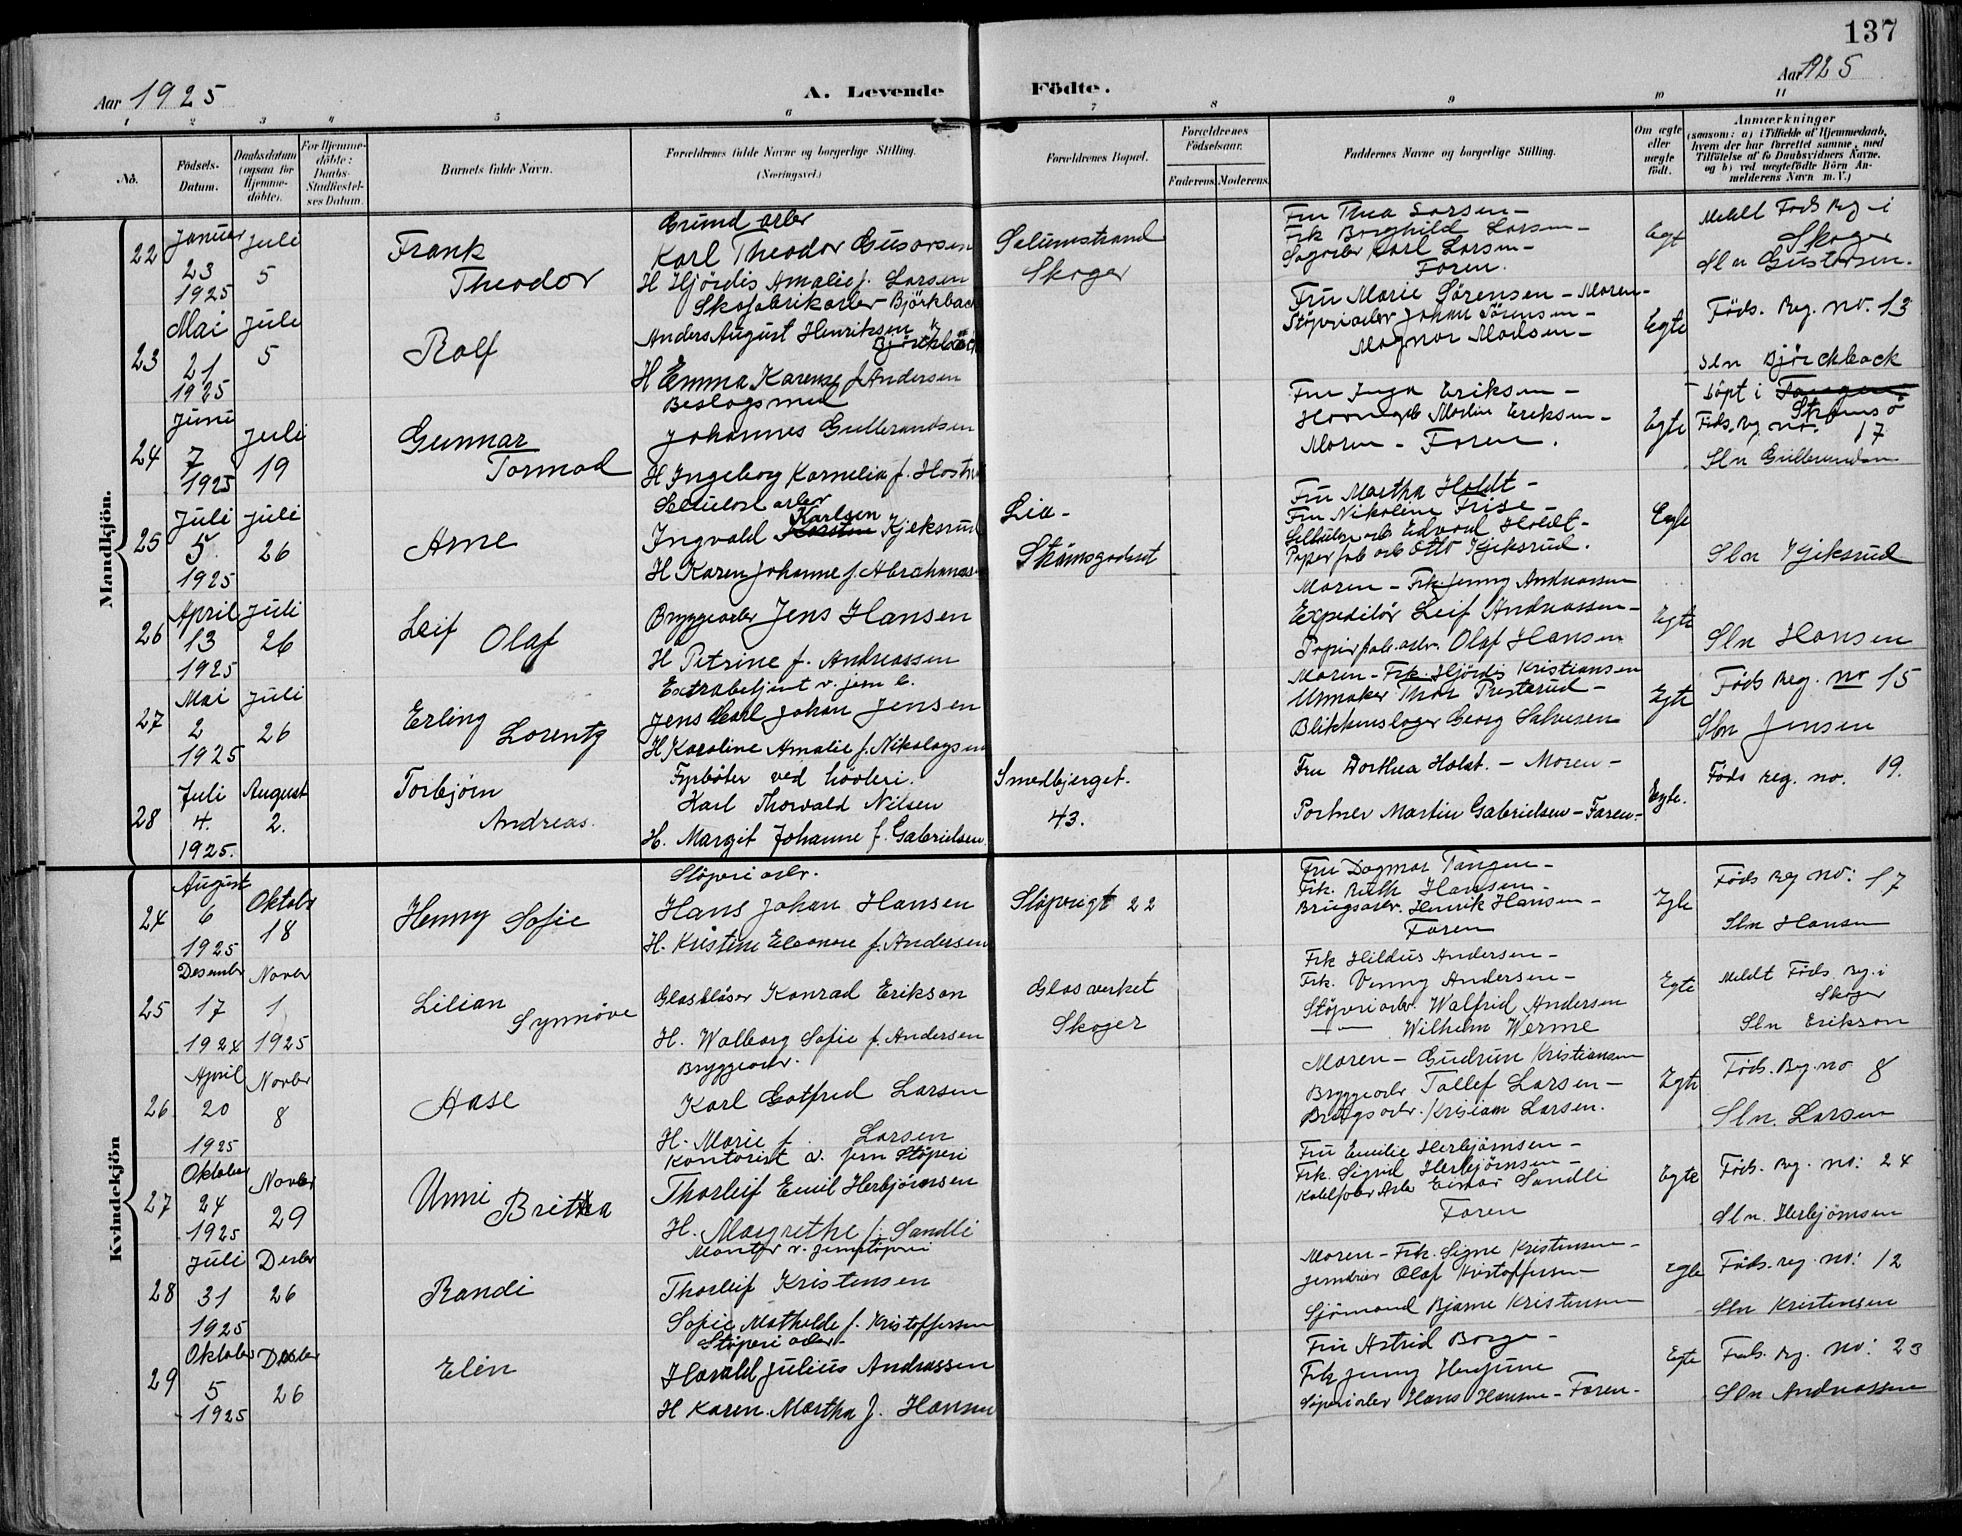 137
Aar 1925
A. Levende Födte.
Aar 1925
1 2 3 4 5 6 7 8 9 10 11
No.
Födsels-Datum.
Daabsdatum (ogsaa for Hjemme-döbte).
For Hjemme-döbte: Daabs-Stadfæstel-ses Datum.
Barnets fulde Navn.
Forældrenes fulde Navne og borgerlige Stilling. (Næringsvei.)
Forældrenes Bopæl.
Forældrenes Födselsaar.
Faderens. Moderens.
Faddernes Navne og borgerlige Stilling.
Om ægte eller uægte födt.
Anmærkninger (saasom: a) i Tilfælde af Hjemmedaab, hvem der har forrettet samme, med Tilföielse af to Daabsvidners Navne, og b) ved uægtefödte Börn An-melderens Navn m. V.)
Mandkjön.
22
Januar 23 1925
Juli 5
Frank Theodor
Grund arbr
Karl Theodor Gusorsen
H Hjördis Amalie f. Larsen
Selumstrand
Skoger
Fru Thea Larsen -
Frk Borghild Larsen -
Sagarbr Karl Larsen -
Faren.
Egt
Meldt Föds Reg - i
Skoger
Sln Gustorsen.
23
Mai 21 1925
Juli 5
Rolf
Skofabrikarbr Björkback
Anders August Henriksen
H Emma Karense f Andersen
Fru Marie Sørensen - Moren -
Støperiarbr Johan Sørensen -
Magnar Madsen -
Egte
Föds. Reg. no. 13
Sln Björckback
24
Juni 7 1925
Juli 19
Gunnar Tormod
Beslagsmed
Johannes Gulbrandsen
H Ingeborg Kornelia f.
Fru Inga Eriksen -
Martin Eriksen -
Moren - Faren.
Egte
Döpt i Tangen Strømsö
Föds. Reg no. 17
Sln Gulbrandsen
25
Juli 5 1925
Juli 26
Arne
Cellulose arbr
Ingvald Karlsen Kjeksrud
H Karen Johanne f. Abrahamsen
Lia -
Strömsgodset
Fru Martha Holdt -
Fru Nikoline Frise -
Cellulose arb Edvard Holdt -
Papir fab arb Otto Kjeksrud.
Egte
Sln Kjeksrud
26
April 13 1925
Juli 26
Leif Olaf
Bryggearbr Jens Hansen
H Petrine f. Andreassen
Moren - Frk. Jenny Andreassen
Expeditör Leif Andreassen -
Papirfab. arbr. Olaf Hansen
Egte
Sln Hansen
27
Mai 2 1925
Juli 26
Erling Lorentz
Extrabetjent v. jern b.
Jens Carl Johan Jensen
H Karoline Amalie f. Nikolaysen
Moren - Frk. Hjördis Kristiansen
Urmaker Thor Presterud -
Blikkenslager Georg Salvesen
Egte
Föds Reg. no 15
Sln Jensen
28
Juli 4. 1925.
August 2.
Torbjörn Andreas.
Fyrböter ved høvleri.
Karl Thorvald Nilsen
H. Margit Johanne f. Gabrielsen.
Smedbjerget. 43.
Fru Dorthea Holst. - Moren -
Portner Martin Gabrielsen - Faren -
Egte.
Föds reg. no. 19.
Kvindekjön
24
August 6 1925
Oktobr 18
Henny Sofie
Støperi arbr.
Hans Johan Hansen
H. Kristine Eleonore f. Andersen
22
Fru Dagmar Tangen -
Frk. Ruth Hansen -
Henrik Hansen -
Faren
Egte
Föds Reg no: 17
Sln Hansen
25
Desember 17 1924
Novbr 1 1925
Lilian Synnøve
Glasblåser Konrad Erikson
H. Walborg Sofie f. Andersen
Glasverket
Skoger
Frk Hildus Andersen -
Frk. Venny Andersen -
Støperi arbr Walfrid Andersen
— " — Wilhelm Werme
Egte
Meldt Föds. Reg. i
Skoger
Sln Erikson
26
April 20 1925
Novbr 8
Aase
Bryggearbr.
Karl Gotfred Larsen
H. Marie f. Larsen
Moren - Gudrun Kristiansen
Bryggearbr Tollef Larsen -
Kristian Larsen.
Egte
Föds. Reg. no 8
Sln. Larsen
27
Oktober 24 1925
Novbr 29
Unni Britta
Kontorist v. jern Støperi
Thorleif Emil Herbjörnsen
H. Margrethe f. Sandli
Fru Emilie Herbjörnsen -
Frk. Sigrid Herbjörnsen -
Kabelfabr Arbr Einar Sandli
Faren
Egte
Föds. Reg. no: 24
Sln. Herbjörnsen
28
Juli 31 1925
Desbr 26
Randi
Montör v. jernstøperi
Thorleif Kristensen
Sofie Mathilde f. Kristoffersen
Moren - Frk. Signe Kristensen -
Olaf Kristoffersen -
Sjömand Bjarne Kristensen
Egte
Föds. reg. no: 12
Sln Kristensen
29
Oktober 5 1925
Desbr 26
Elin
Støperi arbr -
Harald Julius Andreassen
H Karen Martha f. Hansen
Fru Astrid Borge -
Frk Jenny
Støperiarbr Hans Hansen - Faren -
Egte
Föds. Reg. no: 23
Sln Andreassen